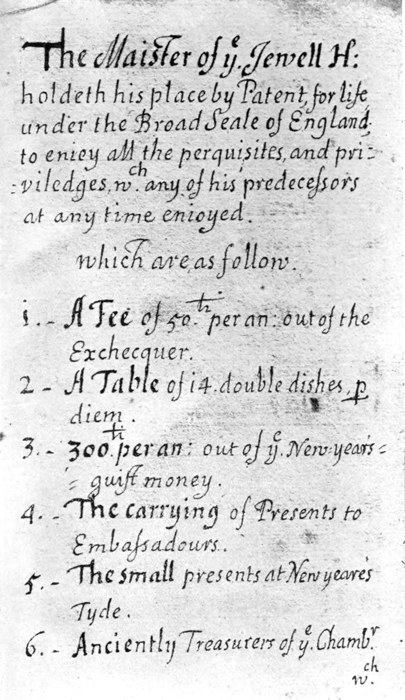 The Maister of yᵉ. Jewell H:
holdeth his place by Patent, for life,
under the Broad Seale of England,
to enioy all the perquisites, and pri=
=viledges, w.ᶜʰ any of his predecessors
at any time enioyed.
which are, as follow.
1.- A Fee of 50.ˡⁱ per an: out of the
Exchecquer.
2- A Table of 14. double dishes, p
diem.
3.- 300ˡⁱ. per an: out of yᵉ. New-years=
=guift money.
4.- The carrying of Presents to
Embassadours.
5.- The small presents at New yeares
Tyde.
6.- Anciently Treasurers of yᵉ. Chambʳ.
w.ᶜʰ